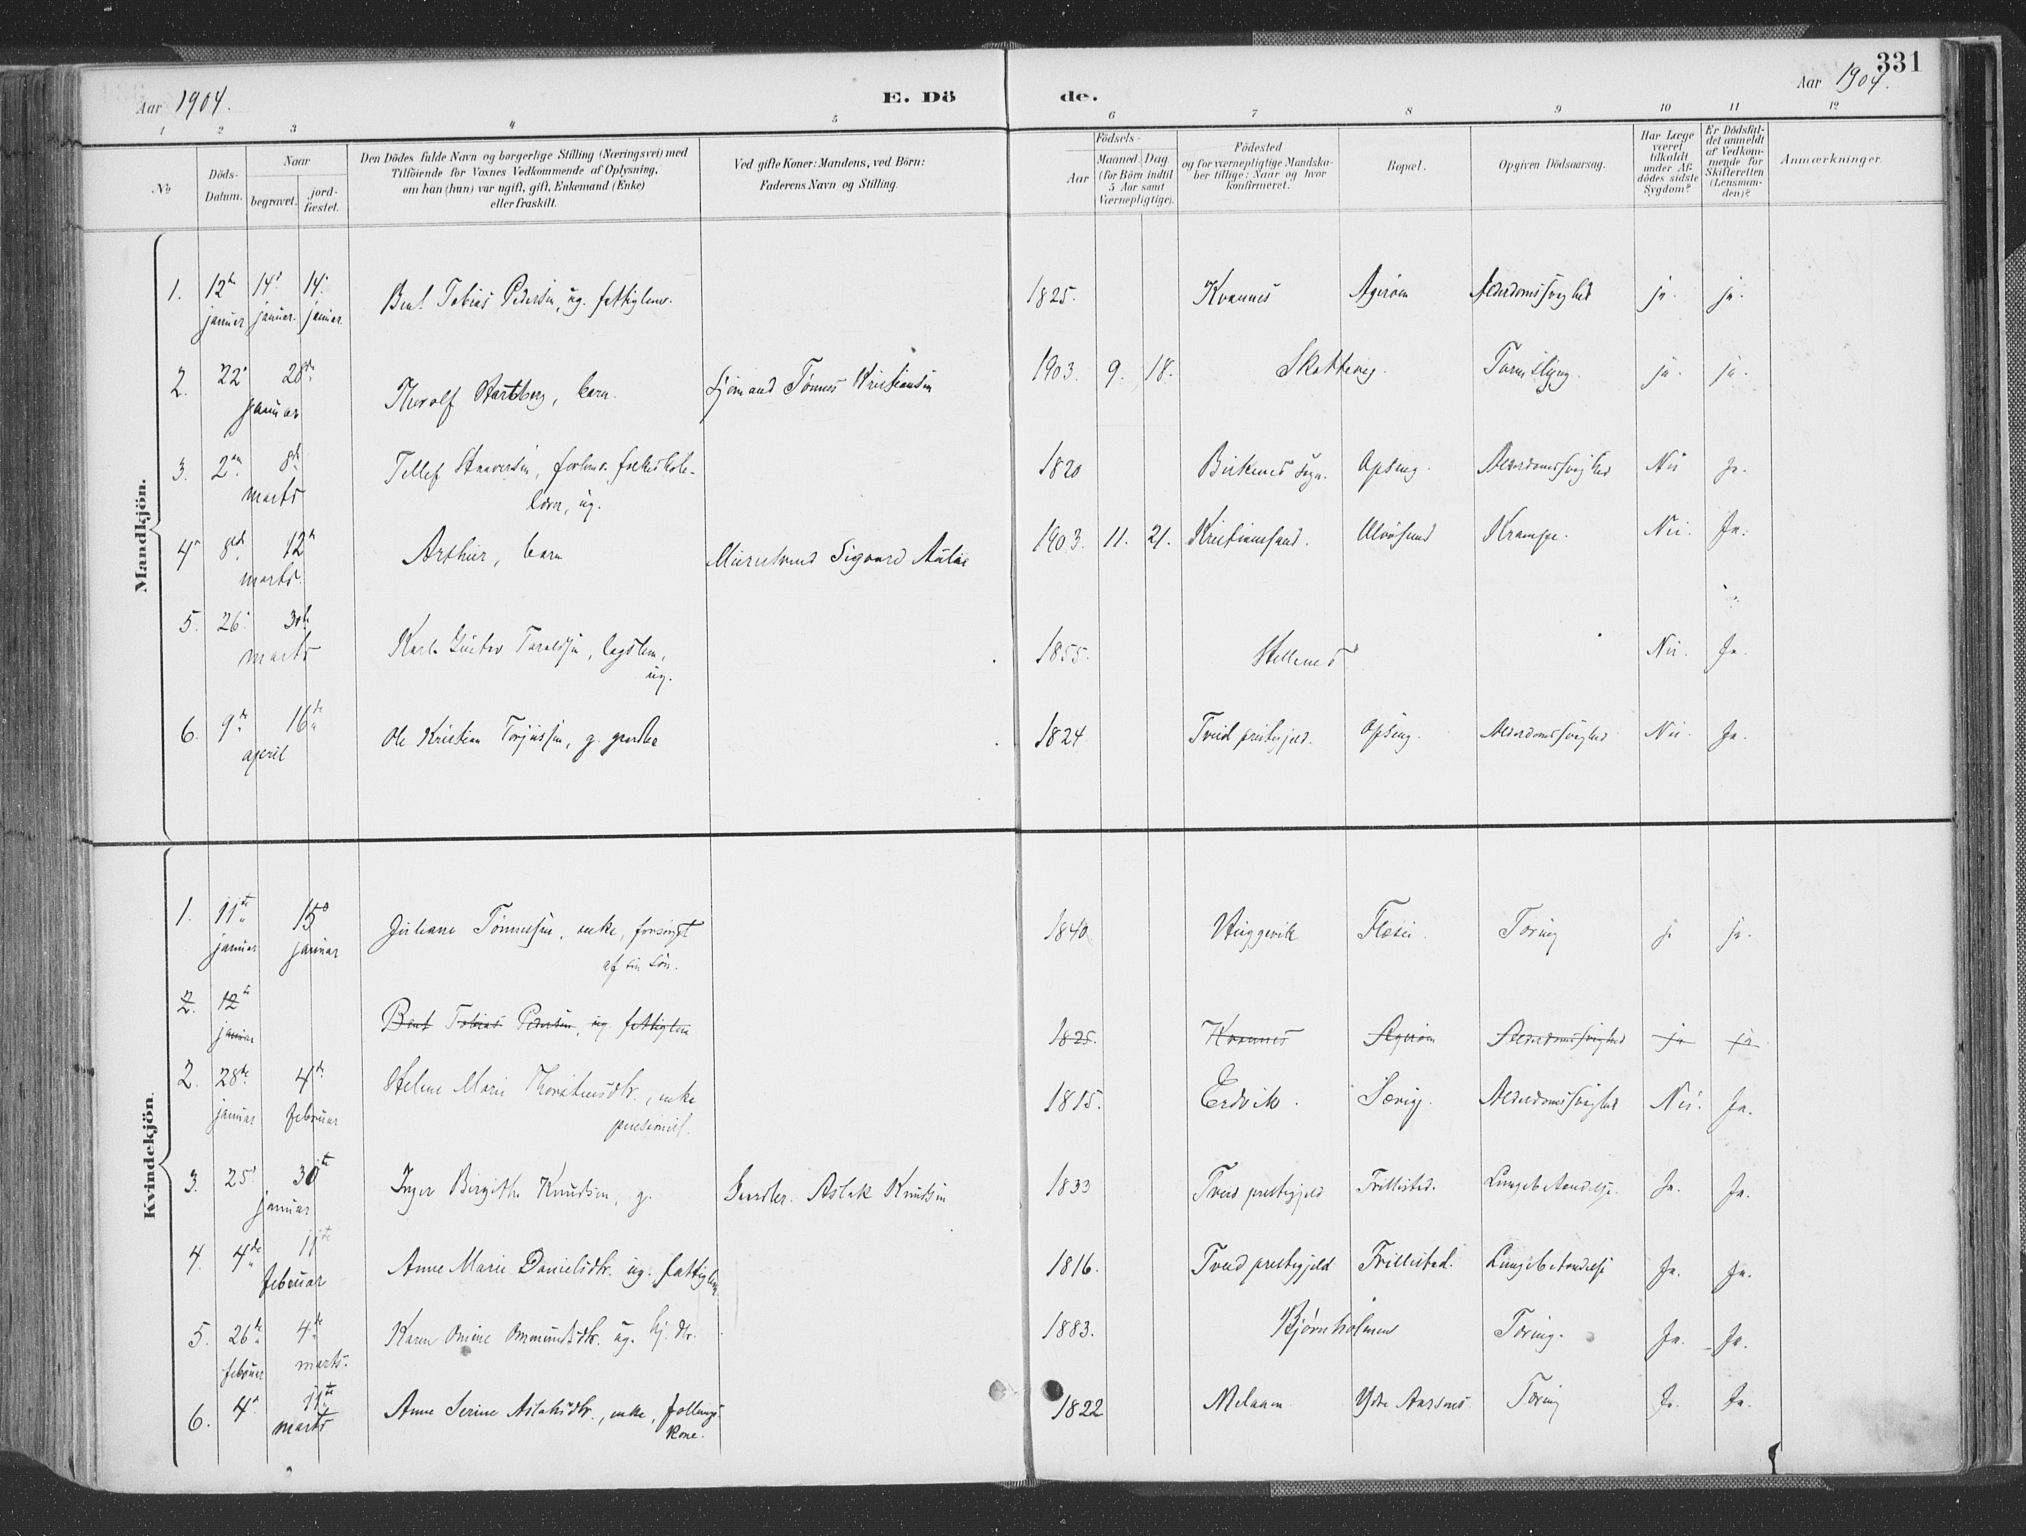 331
Aar 1904.
E. Dö
de.
Aar 1904.
1 2 3 4 5 6 7 8 9 10 11 12
No
Döds-Datum.
Naar
begravet.
jord-fæstet.
Den Dödes fulde Navn og borgerlige Stilling (Næringsvei) med
Tilföiende for Voxnes Vedkommende af Oplysning,
om han (hun) var ugift, gift, Enkemand (Enke)
eller fraskilt.
Ved gifte Koner: Mandens, ved Börn:
Faderens Navn og Stilling.
Födsels-
Aar
Maaned. Dag
(for Börn indtil
5 Aar samt
Værnepligtige).
Födested
og for værnepligtige Mandska-
ber tillige: Naar og hvor
konfirmeret.
Bopæl.
Opgiven Dödsaarsag.
Har Læge
været
tilkaldt
under Af-
dödes sidste
Sygdom?
Er Dödsfal-
det anmeldt
af Vedkom-
mende for
Skifteretten
(Lensman-
den)?
Anmærkninger.
Mandkjön.
1. 12 januar 14 januar. 14. januar. Bent Tobias Pedersen, ug. fattiglem. 1825. Kvannes Agerøen Alderdomssvaghed ja. ja.
2. 22 28de januar Thorolf Hartberg, barn. Sjømand Tønnes Kristiansen 1903. 9. 18. Skottevig. Tarmslyng. ja. ja.
3. 2en 8de marts Tellef Gunversen, forhenv. folkeskole-
lærer, ug. 1820 Birkenes sogn. Øpsang. Alderdomssvaghed Nei Ja.
4 8de 12 marts. Arthur, barn Murersvend Sigvard 1903. 11. 21. Kristianssand. Ulvøsund Krampe. Nei. Ja.
5. 26. 30te marts Karl Gustav Taraldsen, lægdslem,
ug. 1855. Hellenes Nei. Ja.
6. 9de 16de april Ole Kristian Torjussen, g. gardbr. 1824 Tveid prestegjeld. Øpsang. Alderdomssvaghed Nei. Ja.
Kvindekjön.
1. 11te januar 15 januar Juliane Tønnessen, enke, forsørget
af sin søn. 1840. Høggevik Flesei. Tæring ja ja.
2. 12te januar Bent Tobias Pedersen, ug. fattiglem 1825. Kvannes Agerøen Alderdomssvaghed ja ja
2. 28de januar 4de februar Helene Marie Thorstensdtr., enke
pensionist. 1815. Eidvik. Særvig. Alderdomssvaghed Nei. Ja.
3. 25 30te januar Inger Birgithe Knudsen, g. Gardbr. Aslak Knutsen 1833 Tveid prestegjeld Frillestad. Lungebetændelse. Ja. Ja.
4. 4de 11te februar Anne Marie Danielsdtr. ug. fattiglem. 1816. Tveid prestegjeld Frillestad. Lungebetændelse Ja. Ja.
5. 26de februar 4de marts. Karen Omine Ommundsdtr. ug. hj. dtr. 1883. Bjørnholmen Tæring. Ja. Ja.
6. 4. 11te marts Anne Serine Aslaksdtr., enke, føllungs-
kone. 1822 Melaaen. Ydre Aarsnes Tæring Ja. Ja.